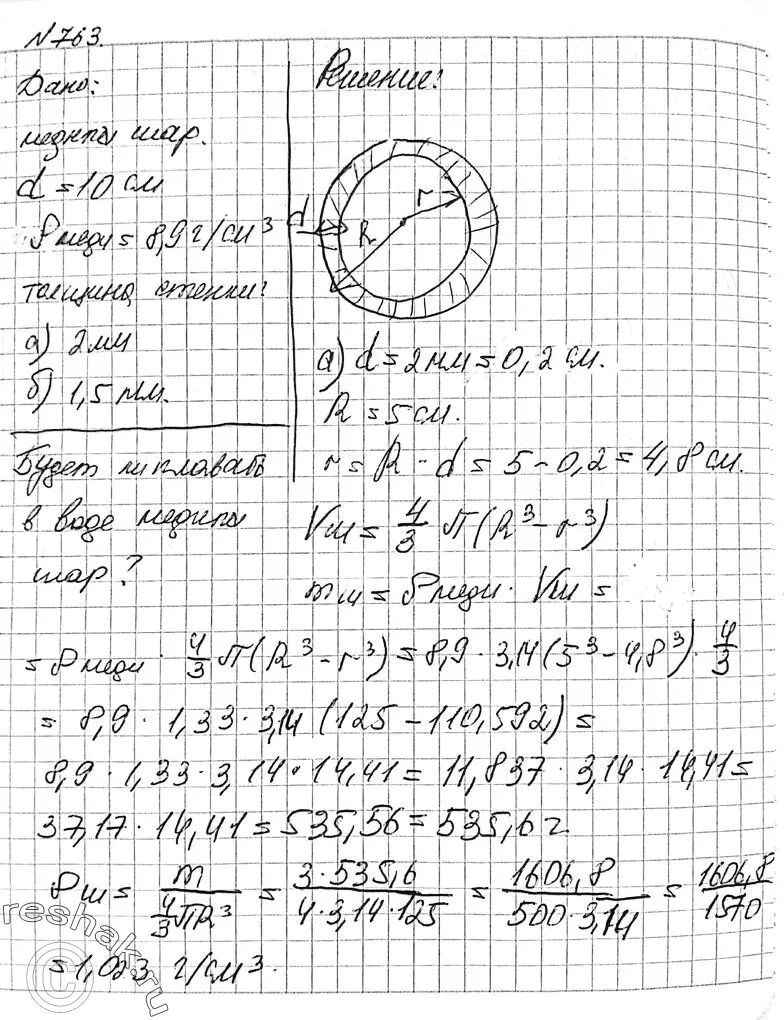 №763.
Дано:
медный шар.
d = 10 см
ρ меди = 8,9 г/см³
толщина стенки:
а) 2 мм
б) 1,5 мм.
Будет ли плавать
в воде медный
шар?
Решение:
d
R
r
а) d = 2 мм = 0,2 см.
R = 5 см.
r = R - d = 5 - 0,2 = 4,8 см.
Vш = 4/3 π(R³ - r³)
mш = ρ меди · Vш =
= ρ меди · 4/3 π(R³ - r³) = 8,9 · 3,14(5³ - 4,8³) · 4/3
= 8,9 · 1,33 · 3,14 (125 - 110,592) =
8,9 · 1,33 · 3,14 · 14,41 = 11,837 · 3,14 · 14,41 =
37,17 · 14,41 = 535,56 = 535,6 г.
ρш = m / 4/3 πR³ = 3·535,6 / 4·3,14·125 = 1606,8 / 500·3,14 = 1606,8 / 1570
= 1,023 г/см³.
reshak.ru